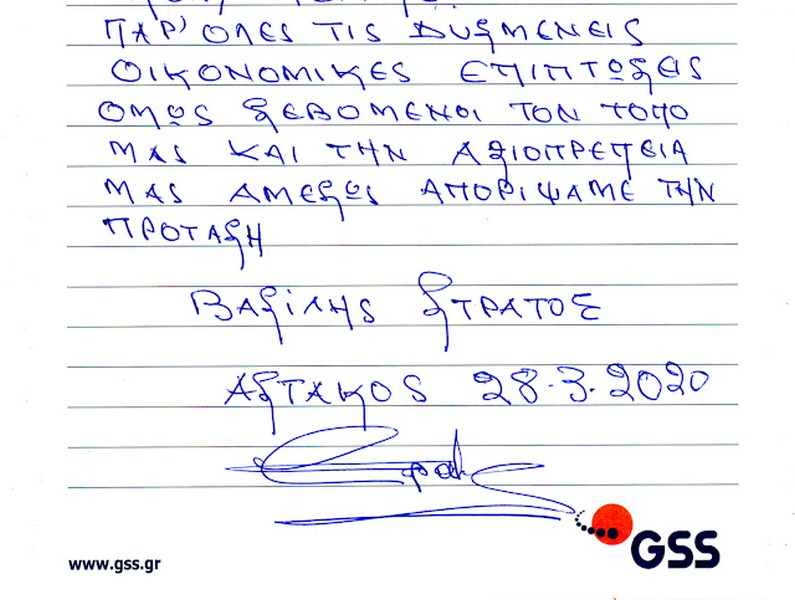 ΠΑΡ' ΟΛΕΣ ΤΙΣ ΔΥΣΜΕΝΕΙΣ
ΟΙΚΟΝΟΜΙΚΕΣ ΕΠΙΠΤΩΣΕΙΣ
ΟΜΩΣ ΣΕΒΟΜΕΝΟΙ ΤΟΝ ΤΟΠΟ
ΜΑΣ ΚΑΙ ΤΗΝ ΑΞΙΟΠΡΕΠΕΙΑ
ΜΑΣ ΑΜΕΣΩΣ ΑΠΟΡΙΨΑΜΕ ΤΗΝ
ΠΡΟΤΑΣΗ
ΒΑΣΙΛΗΣ ΣΤΡΑΤΟΣ
ΑΣΤΑΚΟΣ 28.3.2020
GSS
www.gss.gr